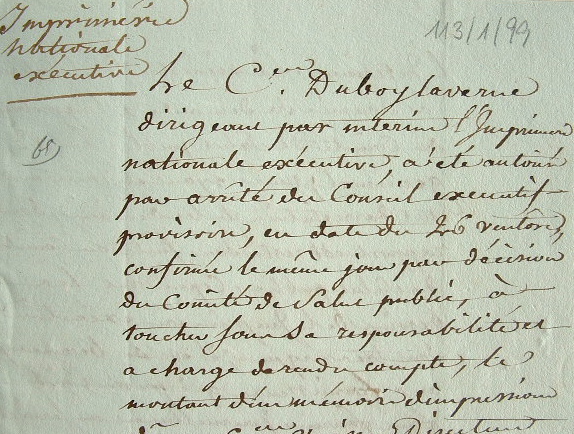 Imprimerie
nationale
exécutive
113/1/99
Le C.en Duboylaverne
dirigeant par interim l'Imprimerie
nationale exécutive, a été autorisé
par arrêté du Conseil executif
provisoire, en date du 26 ventôse,
confirmé le même jour par décision
du Comité de Salut public, à
toucher sous sa responsabilité et
a charge de rendre compte, le
montant d'un mémoire d'impression